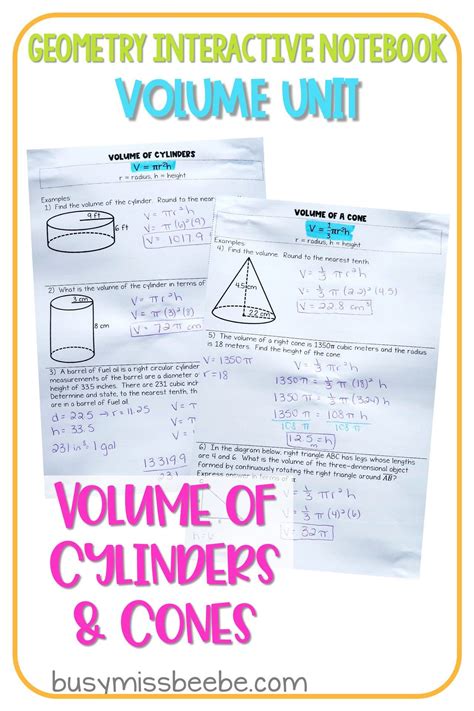 GEOMETRY INTERACTIVE NOTEBOOK
VOLUME UNIT
VOLUME OF CYLINDERS
V = πr²h
r = radius, h = height
Examples:
1) Find the volume of the cylinder. Round to the nearest
9 ft
6 ft
V = πr²h
V = π(9)²
V = 1017.9
2) What is the volume of the cylinder in terms of
3 cm
8 cm
V = πr²h
V = π(3)²(8)
V = 72π
3) A barrel of fuel oil is a right circular cylinder
measurements of the barrel are a diameter of
height of 33.5 inches. There are 231 cubic inch
Determine and state, to the nearest tenth, the
are in a barrel of fuel oil.
d = 22.5 → r = 11.25
h = 33.5
231 in³ = 1 gal
V =
V = π
V =
13319.9
231
VOLUME OF A CONE
V = ⅓πr²h
r = radius, h = height
Examples:
4) Find the volume. Round to the nearest tenth.
4.5 cm
2.2 cm
V = ⅓ πr²h
V = ⅓ π(2.2)²(4.5)
V = 22.8 cm³
5) The volume of a right cone is 1350π cubic meters and the radius
is 18 meters. Find the height of the cone.
V = 1350π
r = 18
V = ⅓ πr²h
1350π = ⅓ π(18)²h
1350π = 108πh
108π 108π
12.5 m = h
6) In the diagram below, right triangle ABC has legs whose lengths
are 4 and 6. What is the volume of the three-dimensional object
formed by continuously rotating the right triangle around AB?
Express answer in terms of
V = ⅓ πr²h
V = ⅓ π(4)²(6)
V = 32π
VOLUME OF
CYLINDERS
& CONES
busymissbeebe.com